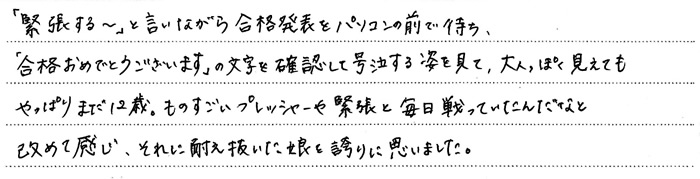 「緊張する〜」と言いながら合格発表をパソコンの前で待ち、
「合格おめでとうございます」の文字を確認して号泣する姿を見て、大人っぽく見えても
やっぱりまだ12歳。ものすごいプレッシャーや緊張と毎日戦っていたんだなと
改めて感じ、それに耐え抜いた娘を誇りに思いました。